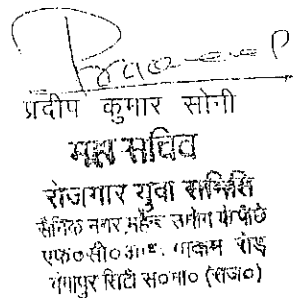 प्रदीप कुमार सोनी
महा सचिव
रोजगार युवा समिति
सैनिक नगर, के पीछे
एफ०सी०आई० गोदाम रोड
गंगापुर सिटी स०मा० (राज०)